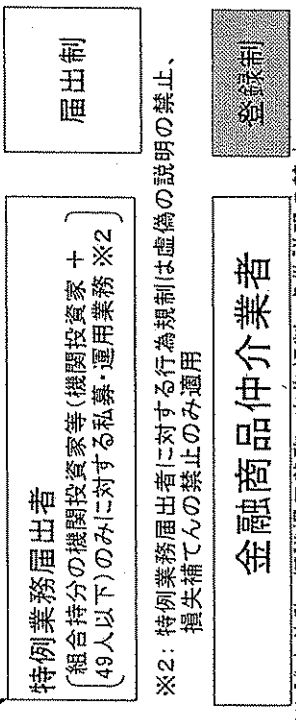 特例業務届出者
組合持分の機関投資家等(機関投資家 +
49人以下)のみに対する私募・運用業務 ※2
届出制
※2: 特例業務届出者に対する行為規制は虚偽の説明の禁止、
損失補てんの禁止のみ適用
金融商品仲介業者
登録制